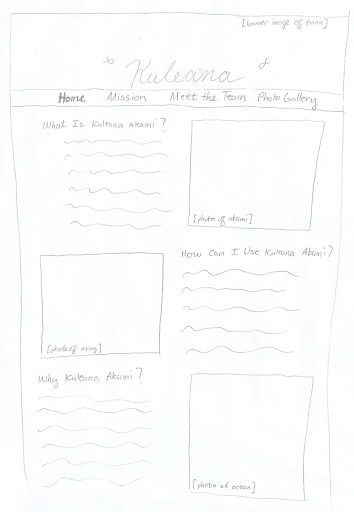 [banner image of
Kuleana
Home Mission Meet the Team Photo Gallery
What Is Kuleana Akami?
[photo of akami]
How Can I Use Kuleana Akami?
[photo of using]
Why Kuleana Akami?
[photo of ocean]